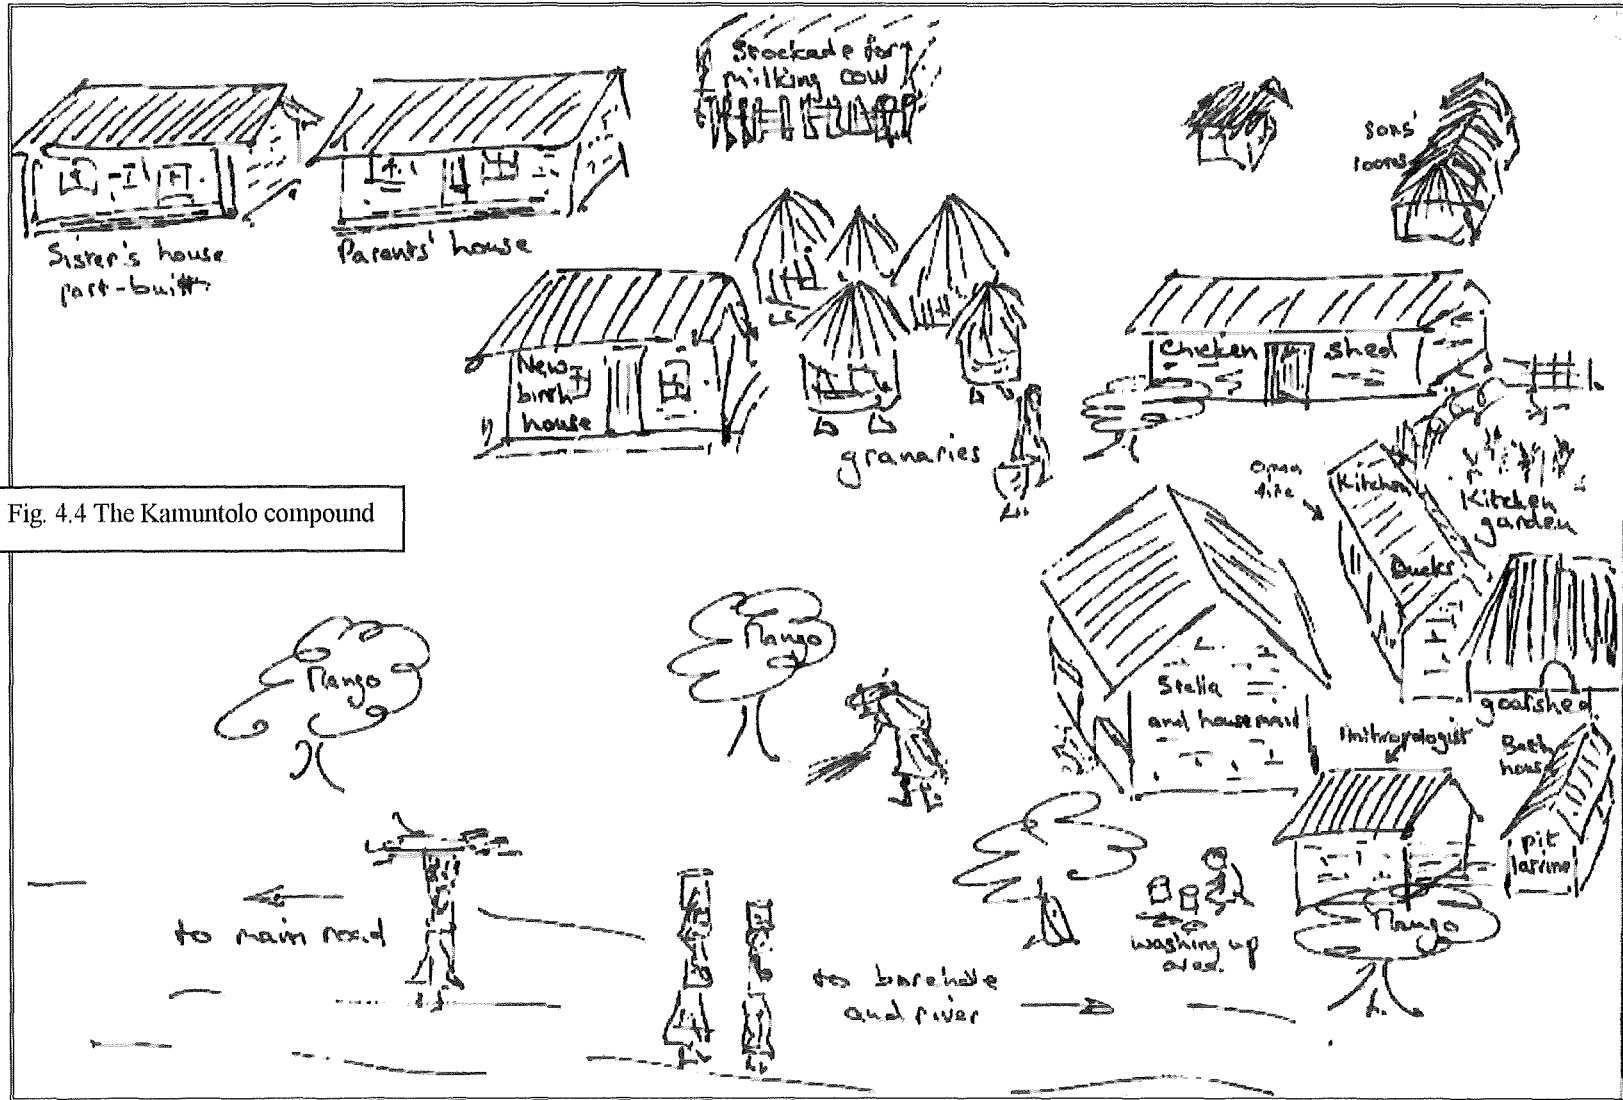 Stockade for
milking cow
sons'
rooms
Sister's house
part-built
Parents' house
New
birth
house
granaries
Chicken shed
open
fire
Kitchen
Kitchen
garden
Ducks
Fig. 4.4 The Kamuntolo compound
Mango
Mango
Stella
and housemaid
goatshed
Anthropologist
Bath
house
pit
latrine
Mango
to main road
washing up
area
to borehole
and river